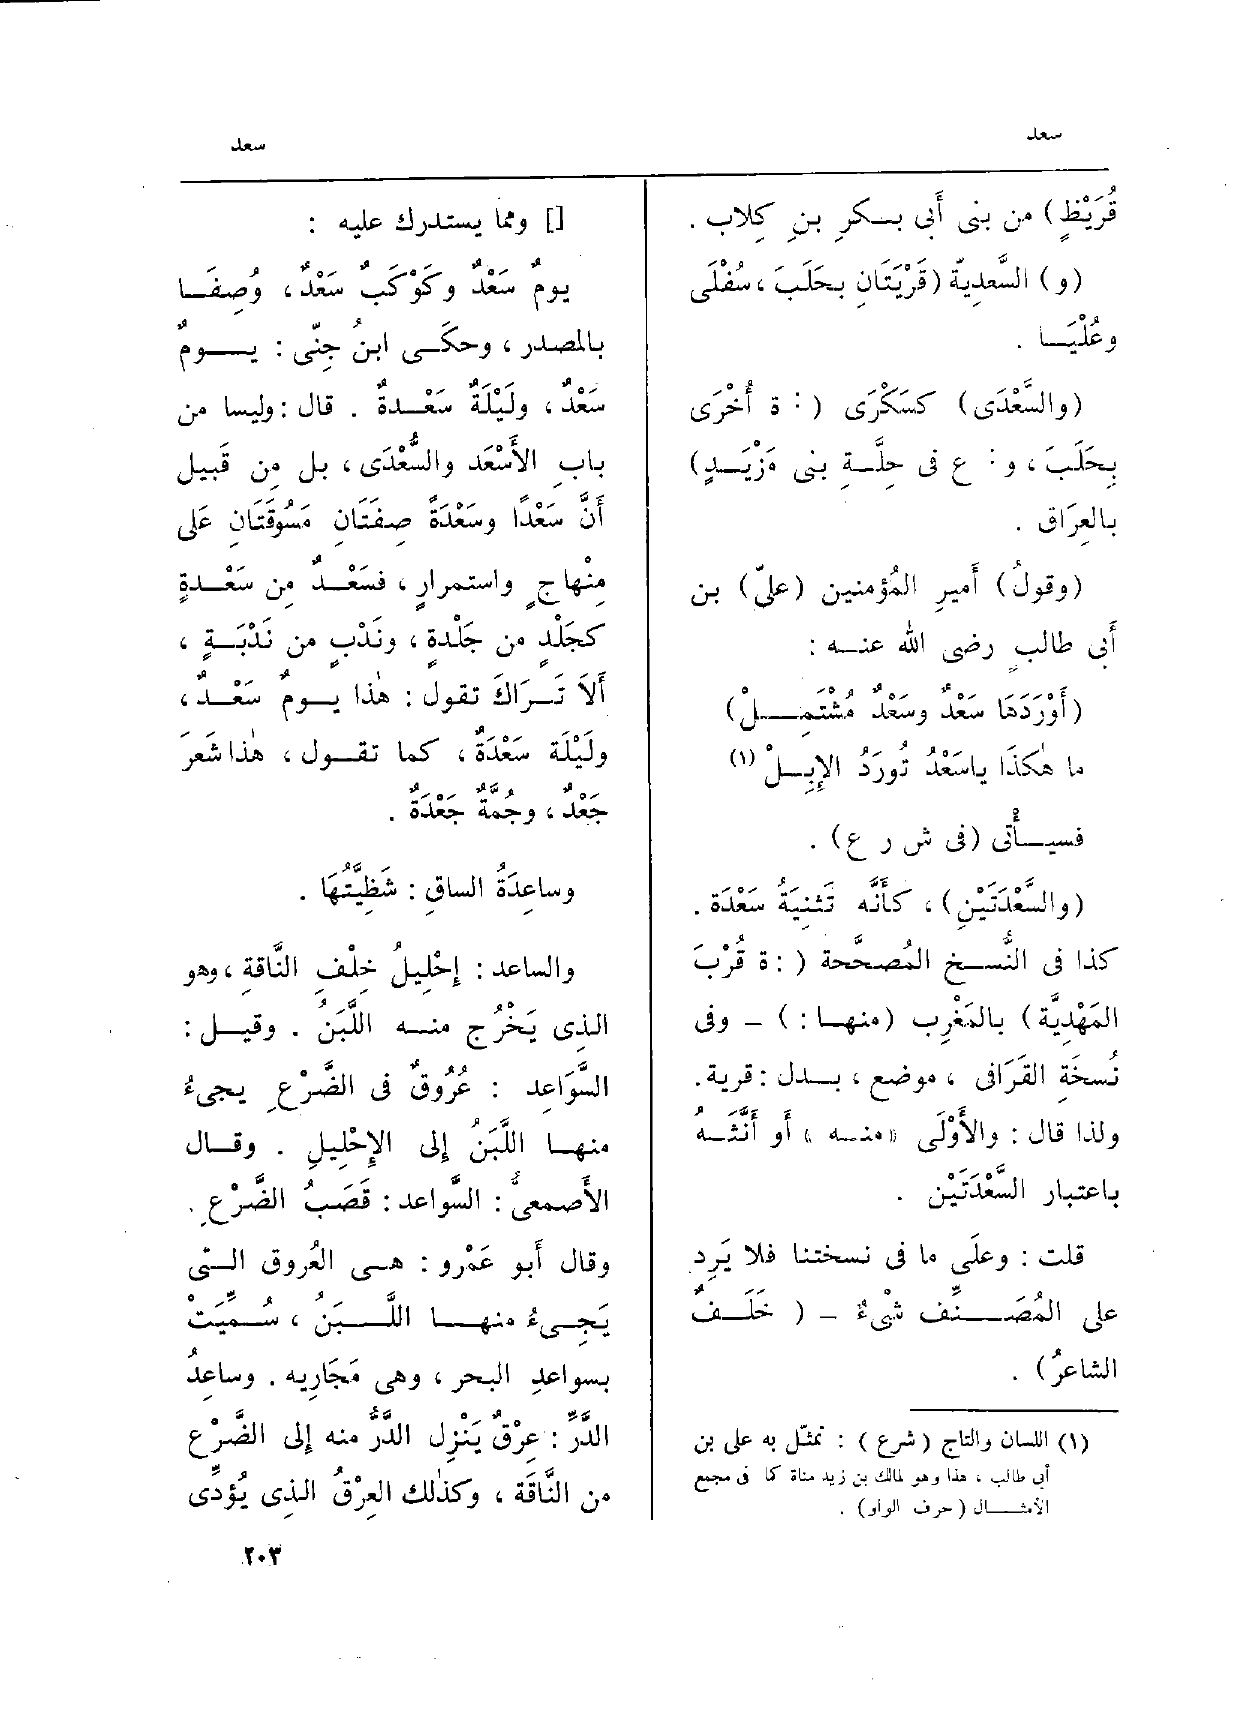 سعد
سعد
قُرَيْظٍ) من بنى أَبى بــكرِ بنِ كِلاب .
(و) السَّعدِيّة (قَرْيَتَانِ بحَلَبَ ، سُفْلَى
وعُلْيَــا .
(والسَّعْدَى) كسَكْرَى ( : ة أُخْرَى
بِحَلَبَ ، و : ع فى حِلَّــةِ بنى مَزْيَــدٍ)
بالعِرَاق .
(وقولُ) أَميرِ المُؤمنين (علىّ) بن
أَبى طالبٍ رضى الله عنــه :
(أَوْرَدَها سَعْدٌ وسَعْدٌ مُشْتَمِــلْ)
ما هٰكَذَا ياسَعْدُ تُورَدُ الإِبِــلْ (١)
فسيــأْتى (فى ش ر ع) .
(والسَّعْدَتَيْنِ) ، كأَنَّه تَثنِيَةُ سَعْدَة .
كذا فى النُّســخ المُصحَّحة ( : ة قُرْبَ
المَهْدِيَّة) بالمَغْرِب (منهــا : ) – وفى
نُسخَةِ القَرَافى ، موضع ، بــدل : قرية .
ولذا قال : والأَوْلَى «منــه » أَو أَنَّثَــه
باعتبار السَّعْدَتَيْنِ .
قلت : وعلَى ما فى نسختنا فلا يَرِد
على المُصَــنِّف شىْءٌ – ( خَلَــفٌ
الشاعرُ) .
(١) اللسان والتاج (شرع ) : تمثّل به على بن
أبى طالب ، هذا وهو لمالك بن زيد مناة كما فى مجمع
الأمثــال (حرف الواو) .
[] ومما يستدرك عليه :
يومٌ سَعْدٌ وكَوْكَبٌ سَعْدٌ ، وُصِفَــا
بالمصدر ، وحكَــى ابنُ جِنّى : يــومٌ
سَعْدٌ ، ولَيْلَةٌ سَعْــدةٌ . قال : وليسا من
بابِ الأَسْعَد والسُّعْدَى ، بل مِن قَبيل
أَنَّ سَعْدًا وسَعْدَةً صِفَتَانِ مَسُوقَتَانِ عَلى
مِنْهاجٍ واستمرارٍ ، فسَعْــدٌ مِن سَعْــدةٍ
كجَلْدٍ من جَلْدةٍ ، ونَدْبٍ من نَدْبَــةٍ ،
أَلاَ تَــرَاكَ تقول : هٰذا يــومٌ سَعْــدٌ ،
ولَيْلَة سَعْدَةٌ ، كما تقــول ، هٰذا شَعَرَ
جَعْدٌ ، وجُمَّةٌ جَعْدَةٌ .
وساعِدَةُ الساقِ : شَظِيَّتُهَا .
والساعد : إِحْلِيلُ خِلْفِ النَّاقةِ ، وهو
الذى يَخْرُج منــه اللَّبَنُ . وقيــل :
السَّوَاعِد : عُرُوقٌ فى الضَّرْعِ يجىءُ
منهــا اللَّبَنُ إِلى الإِحْلِيلِ . وقــال
الأَصمعىُّ : السَّواعد : قَصَبُ الضَّرْعِ .
وقال أَبو عَمْرو : هــى العُروق الــتى
يَجِــىءُ منهــا اللَّــبَنُ ، سُــمِّيَتْ
بسواعدِ البحر ، وهى مَجَارِيه . وساعِدُ
الدَّرِّ : عِرْقٌ يَنْزِل الدَّرُّ منه إِلى الضَّرْع
من النَّاقَة ، وكذٰلك العِرْقُ الذى يُؤدِّى
٢٠٣